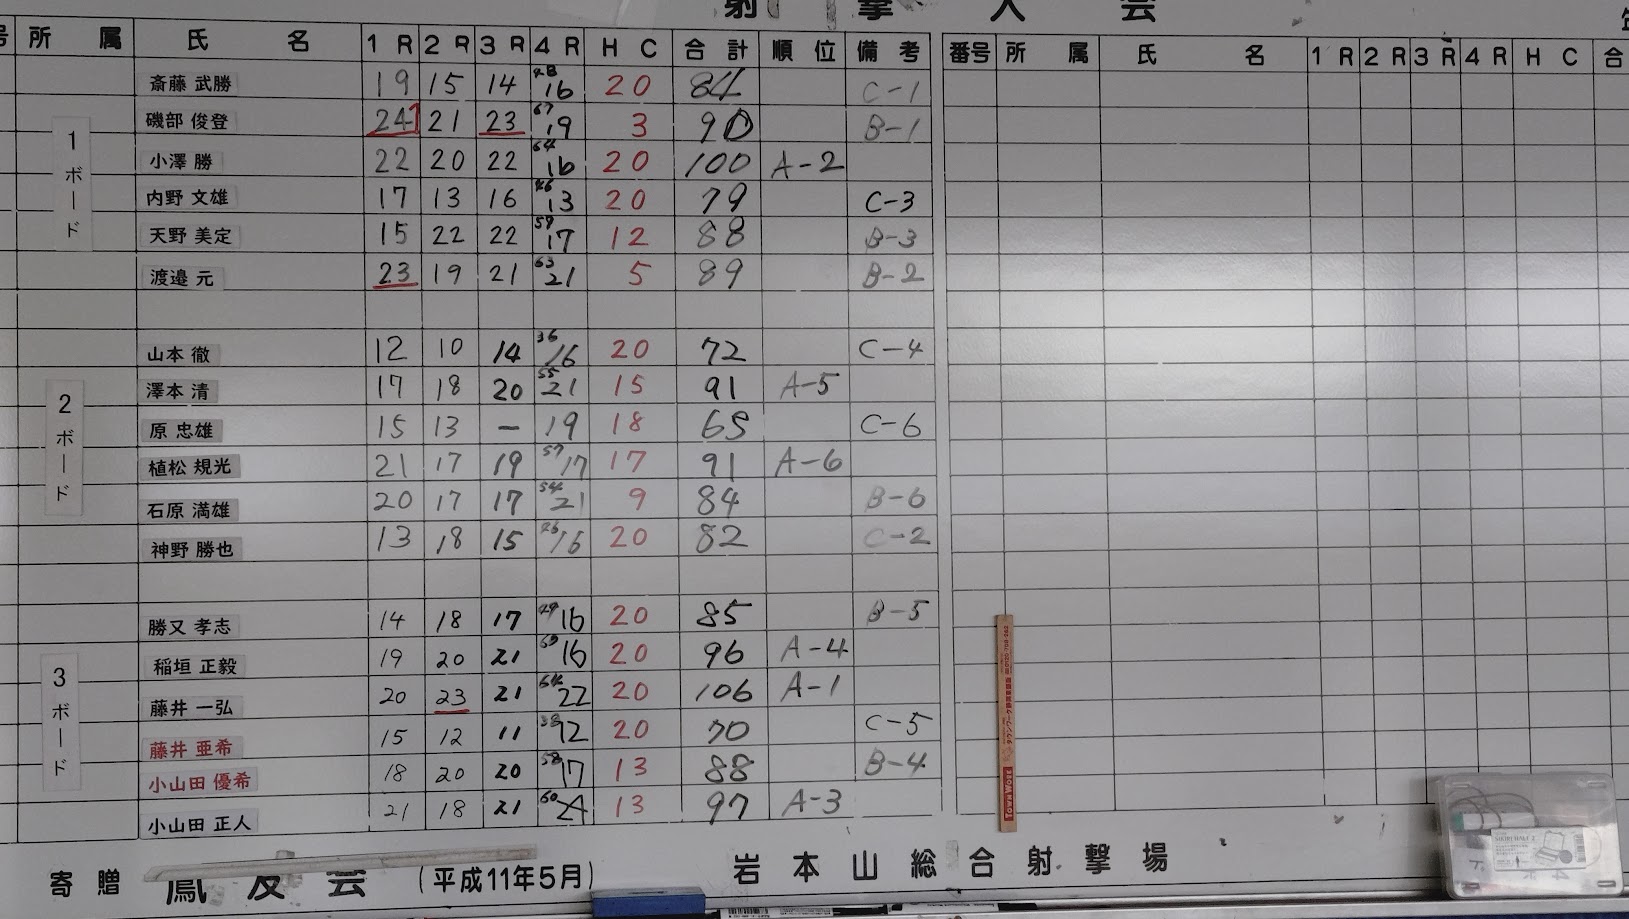 射撃大会
号 所属 氏名 1R 2R 3R 4R HC 合計 順位 備考
番号 所属 氏名 1R 2R 3R 4R HC 合
1ボード
斎藤 武勝 19 15 14 48 16 20 84 C-1
磯部 俊登 24 21 23 67 19 3 90 B-1
小澤 勝 22 20 22 64 16 20 100 A-2
内野 文雄 17 13 16 46 13 20 79 C-3
天野 美定 15 22 22 59 17 12 88 B-3
渡邉 元 23 19 21 63 21 5 89 B-2
2ボード
山本 徹 12 10 14 36 16 20 72 C-4
澤本 清 17 18 20 55 21 15 91 A-5
原 忠雄 15 13 - 19 18 65 C-6
植松 規光 21 17 19 57 17 17 91 A-6
石原 満雄 20 17 17 54 21 9 84 B-6
神野 勝也 13 18 15 46 16 20 82 C-2
3ボード
勝又 孝志 14 18 17 49 16 20 85 B-5
稲垣 正毅 19 20 21 60 16 20 96 A-4
藤井 一弘 20 23 21 64 22 20 106 A-1
藤井 亜希 15 12 11 38 12 20 70 C-5
小山田 優希 18 20 20 58 17 13 88 B-4
小山田 正人 21 18 21 60 24 13 97 A-3
寄贈 鳳友会 (平成11年5月) 岩本山総合射撃場
TOWN WORK